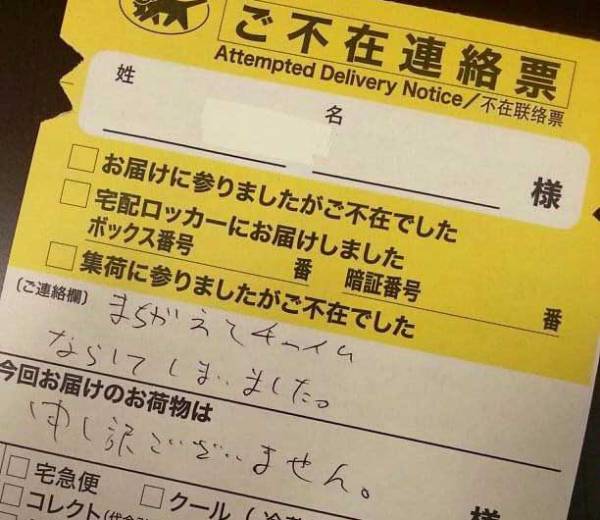 ご不在連絡票
Attempted Delivery Notice/不在联络票
姓 名 様
お届けに参りましたがご不在でした
宅配ロッカーにお届けしました
ボックス番号 番 暗証番号 番
集荷に参りましたがご不在でした
(ご連絡欄)
まちがえてチャイム
ならしてしまいました。
今回お届けのお荷物は
申し訳ございません。
様
宅急便
コレクト クール